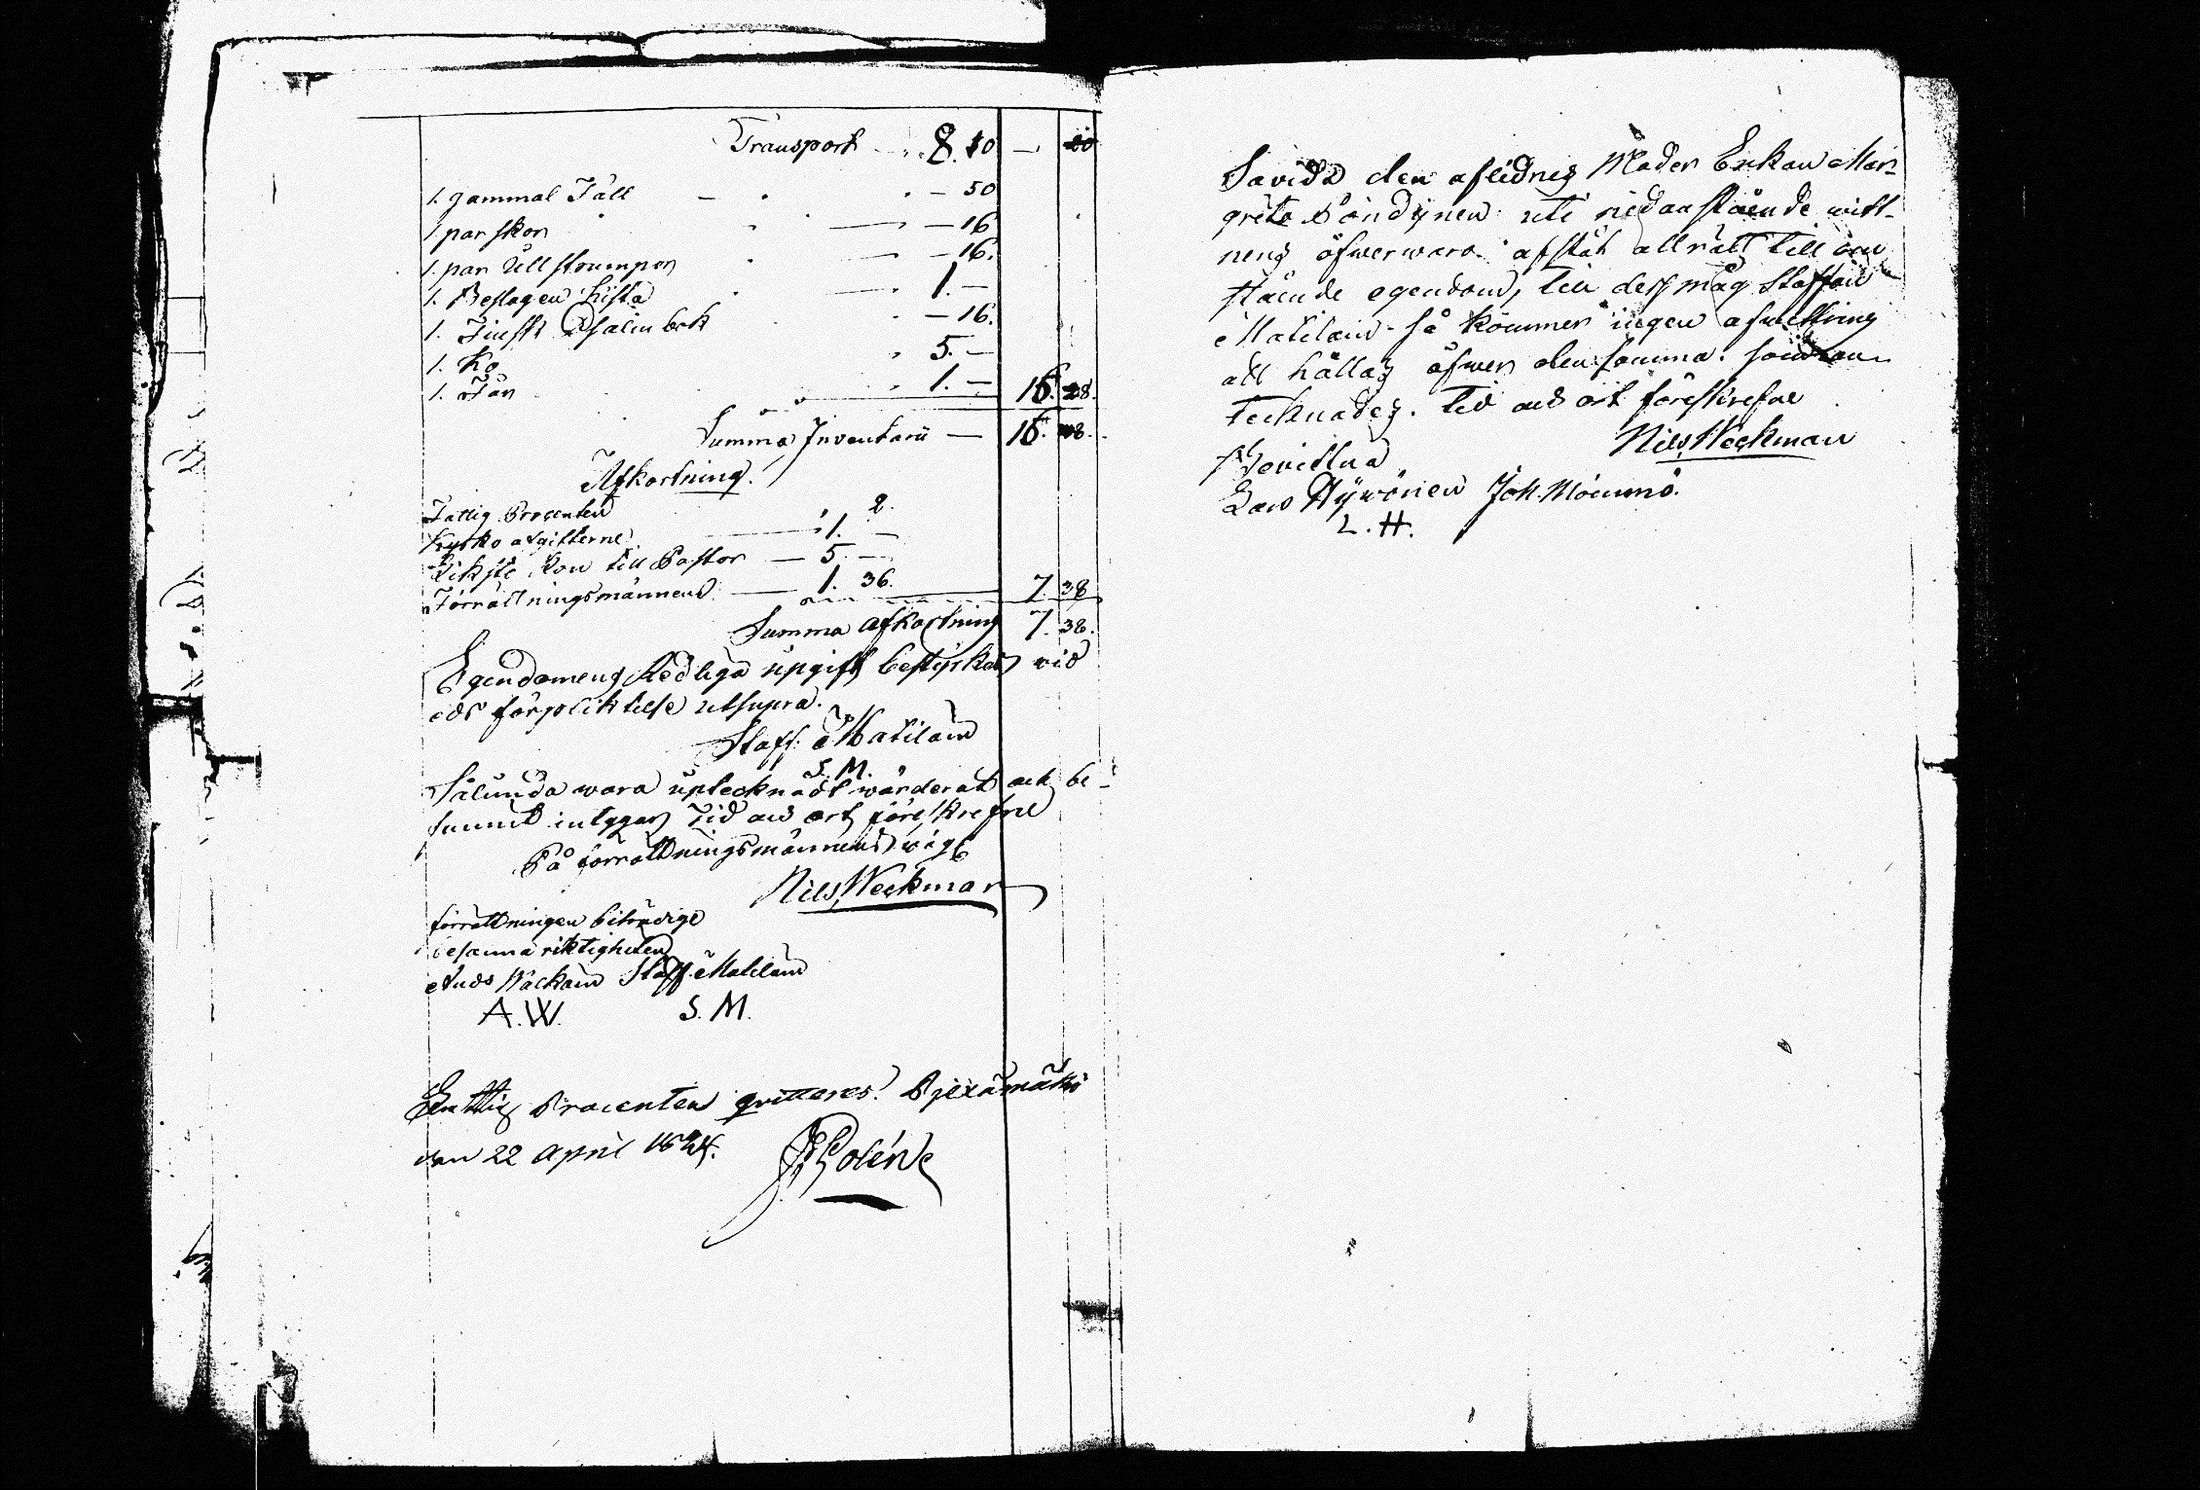 Transport 8. 10 —
1. gammal Fäll — 50
1 par skor — 16
1. par Ull strumpor — 16.
1. Beslagen Kista 1. —
1. Finsk Psalm bok — 16.
1. Ko 5. —
1. Får 1. — 16. 28.
Summa Inventarii — 16.
Afkortning.
Fattig Procenten 2.
Kyrko afgifterne 1. —
Likstå Kon till Pastor — 5. —
Förrättningsmännens — 1. 36. 7. 38
Summa afkortning 7. 38.
Egendomens Redliga upgift bestyrkes vid
eds förpliktelse utsupra.
Staff. Matilain
S. M.
Sålunda wara uptecknadt wärderat och be-
funnit intygar Tid och ort föreskrefne
På förrättningsmännens wägn
Nils Weckman
förrättningen biträdige
besanna riktigheten
Ands Wäckäin Staff. Matilain
A. W. S. M.
Fattig Procenten qvitteras. Pjexämäki
den 22 April 1824.
Sawida den aflidnes Moder Enkan Mar-
greta Pöndynen uti nedanstående witt-
nens öfwerwaro afstått all rätt till
stående egendom, till dess måg Staffan
Matilain så kommer ingen afwittring
att hållas öfwer den samma. som
tecknades. Tid och ort föreskrefne
Nils Weckman
Bewittna
Lars Hywönen Joh. Mömmö.
L. H.